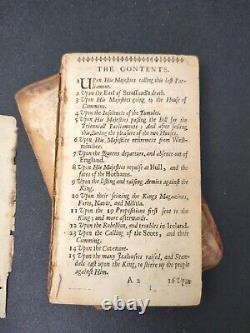 THE CONTENTS.
UPon His Majesties calling this last Par-
liament.
2 Upon the Earl of Straffords death.
3 Upon His Majesties going to the House of
Commons.
4 Upon the Insolencie of the Tumults.
5 Upon His Majesties passing the bill for the
Triennial Parliaments; And after setling
this, during the pleasure of the two Houses.
6 Upon His Majesties retirement from West-
minster.
7 Upon the Queens departure, and absence out of
England.
8 Upon His Majesties repulse at Hull, and the
fates of the Hothams.
9 Upon the listing and raising Armies against the
King.
10 Upon their seizing the Kings Magazines,
Forts, Navie, and Militia.
11 Upon the 19 Propositions first sent to the
King; and more afterwards.
12 Upon the Rebellion, and troubles in Ireland.
13 Upon the Calling of the Scots, and their
Comming.
14 Upon the Covenant.
15 Upon the many Jealousies raised, and Scan-
dals cast upon the King, to stirre up the people
against Him.
A 2
16 Upon